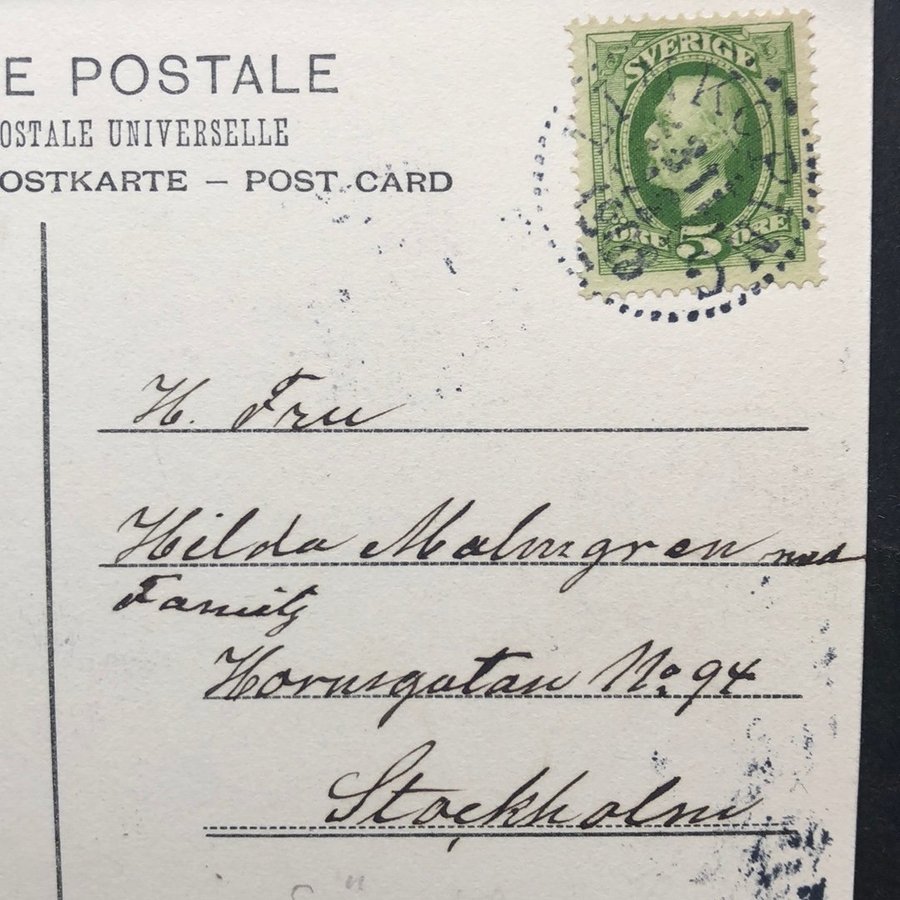 E POSTALE
OSTALE UNIVERSELLE
OSTKARTE – POST CARD
SVERIGE
5 ÖRE
H. Fru
Hilda Malmgren med
Familj
Hornsgatan No 94
Stockholm